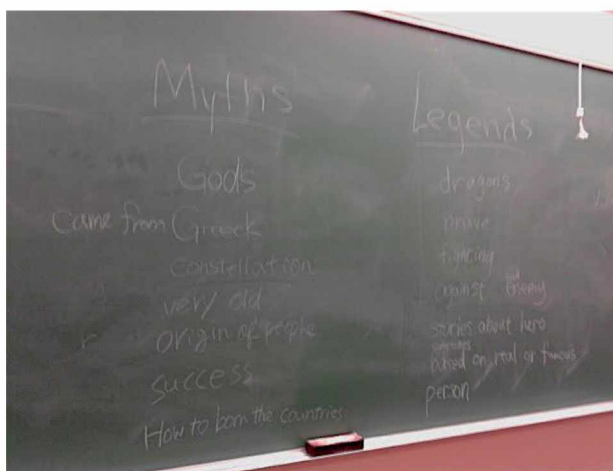 Myths
Gods
came from Greeck
constellation
very old
origin of people
success
How to born the countries
Legends
dragons
prove
fighting
against enemy
stories about hero
based on real or famous
person